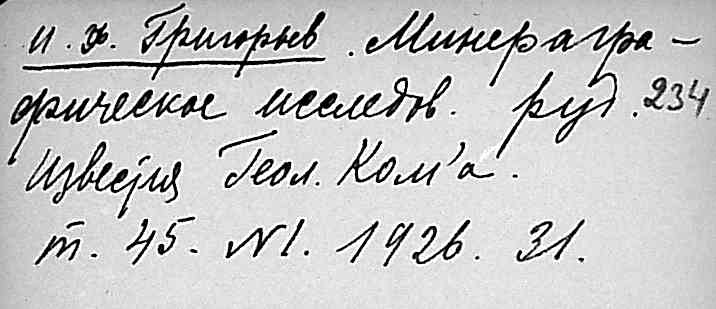 И. Ф. Григорьев. Минерагра-
фическое исследов. руд. 234
Известия Геол. Ком'а.
т. 45. N1. 1926. 31.